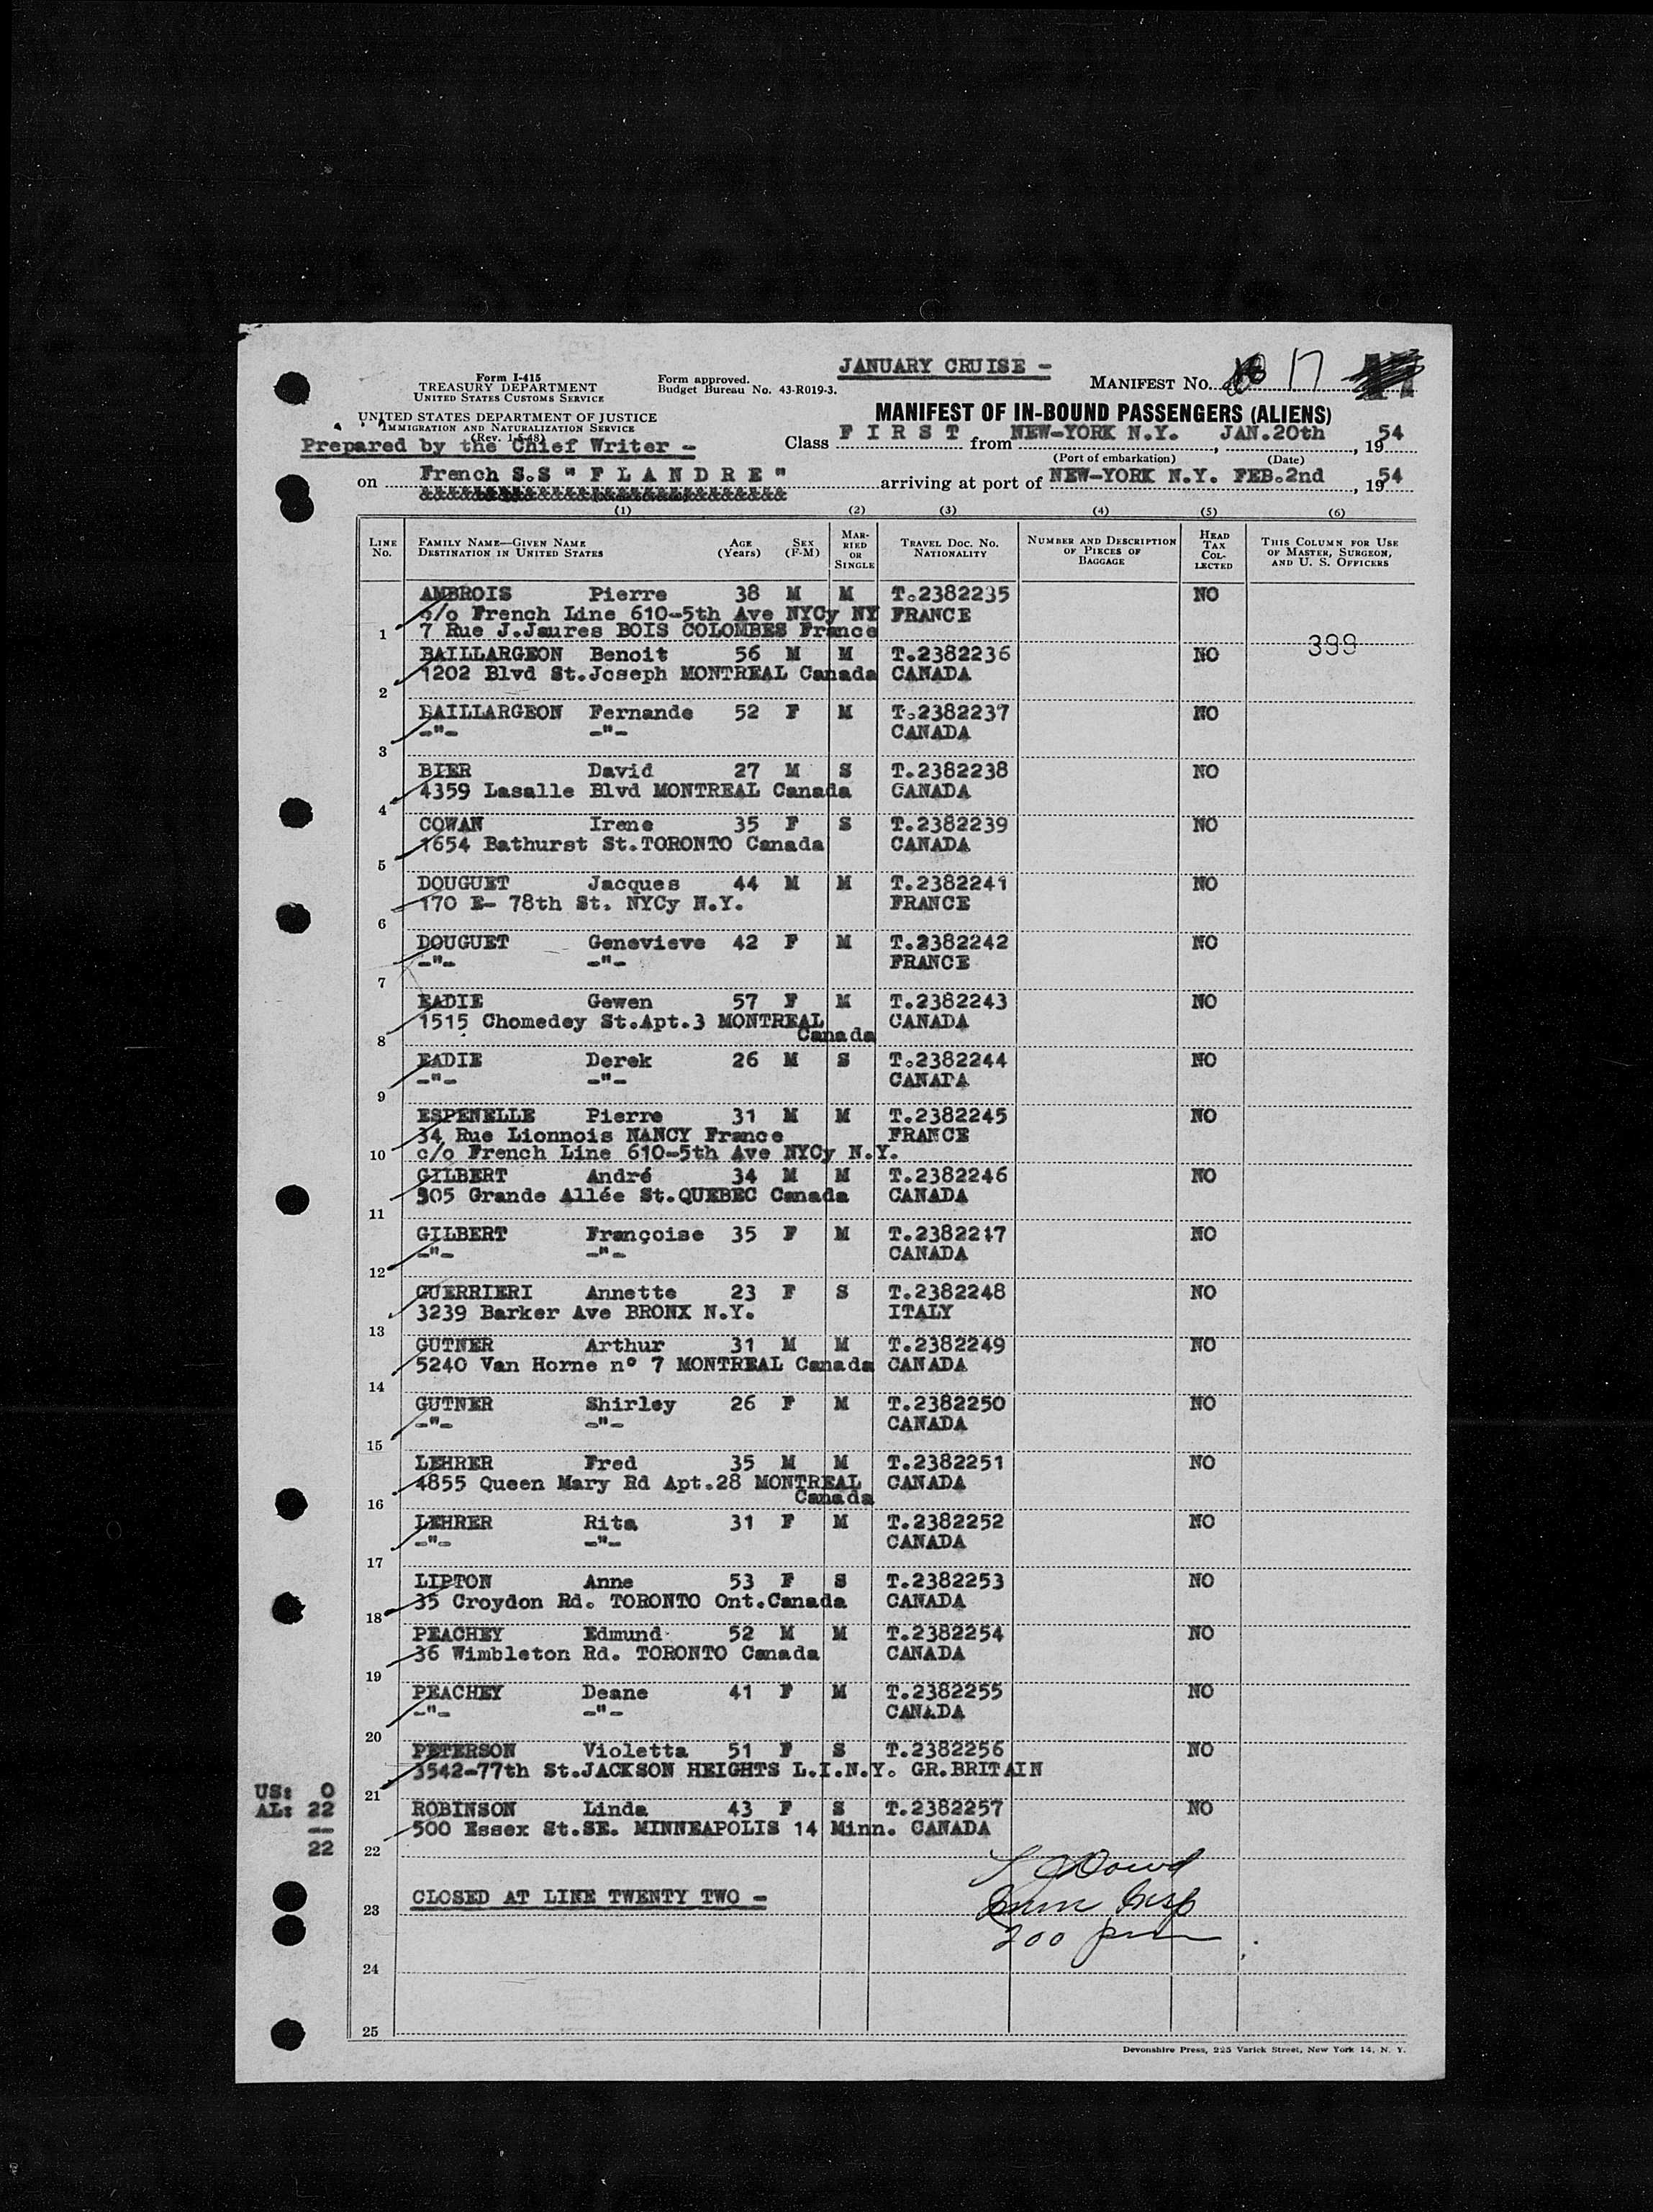 JANUARY CRUISE -
Form I-415
TREASURY DEPARTMENT
UNITED STATES CUSTOMS SERVICE
Form approved.
Budget Bureau No. 43-R019-3.
MANIFEST No. 17
UNITED STATES DEPARTMENT OF JUSTICE
IMMIGRATION AND NATURALIZATION SERVICE
(Rev. 1-5-48)
MANIFEST OF IN-BOUND PASSENGERS (ALIENS)
Prepared by the Chief Writer -
Class F I R S T from NEW-YORK N.Y. , JAN.20th , 1954
(Port of embarkation) (Date)
on French S.S " F L A N D R E " arriving at port of NEW-YORK N.Y. FEB.2nd , 1954
&&&&&&&&&&&&&&&&&&&&&&&&&&&&&&&&&&
(1) (2) (3) (4) (5) (6)
LINE No. FAMILY NAME—GIVEN NAME DESTINATION IN UNITED STATES AGE (Years) SEX (F-M) MARRIED OR SINGLE TRAVEL DOC. No. NATIONALITY NUMBER AND DESCRIPTION OF PIECES OF BAGGAGE HEAD TAX COLLECTED THIS COLUMN FOR USE OF MASTER, SURGEON, AND U. S. OFFICERS
AMBROIS Pierre 38 M M T.2382235 NO
c/o French Line 610-5th Ave NYCy NY FRANCE
1 7 Rue J.Jaures BOIS COLOMBES France
399
BAILLARGEON Benoit 56 M M T.2382236 NO
1202 Blvd St.Joseph MONTREAL Canada CANADA
2
BAILLARGEON Fernande 52 F M T.2382237 NO
-"- -"- CANADA
3
BIER David 27 M S T.2382238 NO
4359 Lasalle Blvd MONTREAL Canada CANADA
4
COWAN Irene 35 F S T.2382239 NO
1654 Bathurst St.TORONTO Canada CANADA
5
DOUGUET Jacques 44 M M T.2382241 NO
170 E- 78th St. NYCy N.Y. FRANCE
6
DOUGUET Genevieve 42 F M T.2382242 NO
-"- -"- FRANCE
7
EADIE Gewen 57 F M T.2382243 NO
1515 Chomedey St.Apt.3 MONTREAL CANADA
8 Canada
EADIE Derek 26 M S T.2382244 NO
-"- -"- CANADA
9
ESPENELLE Pierre 31 M M T.2382245 NO
34 Rue Lionnois NANCY France FRANCE
10 c/o French Line 610-5th Ave NYCy N.Y.
GILBERT André 34 M M T.2382246 NO
305 Grande Allée St.QUEBEC Canada CANADA
11
GILBERT Françoise 35 F M T.2382247 NO
-"- -"- CANADA
12
GUERRIERI Annette 23 F S T.2382248 NO
3239 Barker Ave BRONX N.Y. ITALY
13
GUTNER Arthur 31 M M T.2382249 NO
5240 Van Horne n° 7 MONTREAL Canada CANADA
14
GUTNER Shirley 26 F M T.2382250 NO
-"- -"- CANADA
15
LEHRER Fred 35 M M T.2382251 NO
4855 Queen Mary Rd Apt.28 MONTREAL CANADA
16 Canada
LEHRER Rita 31 F M T.2382252 NO
-"- -"- CANADA
17
LIPTON Anne 53 F S T.2382253 NO
18 35 Croydon Rd. TORONTO Ont.Canada CANADA
PEACHEY Edmund 52 M M T.2382254 NO
36 Wimbleton Rd. TORONTO Canada CANADA
19
PEACHEY Deane 41 F M T.2382255 NO
-"- -"- CANADA
20
PETERSON Violetta 51 F S T.2382256 NO
3542-77th St.JACKSON HEIGHTS L.I.N.Y. GR.BRITAIN
US: 0 21
AL: 22 ROBINSON Linda 43 F S T.2382257 NO
500 Essex St.SE. MINNEAPOLIS 14 Minn. CANADA
22 22
CLOSED AT LINE TWENTY TWO -
Imm Insp
23
200 pm
24
25
Devonshire Press, 225 Varick Street, New York 14, N. Y.